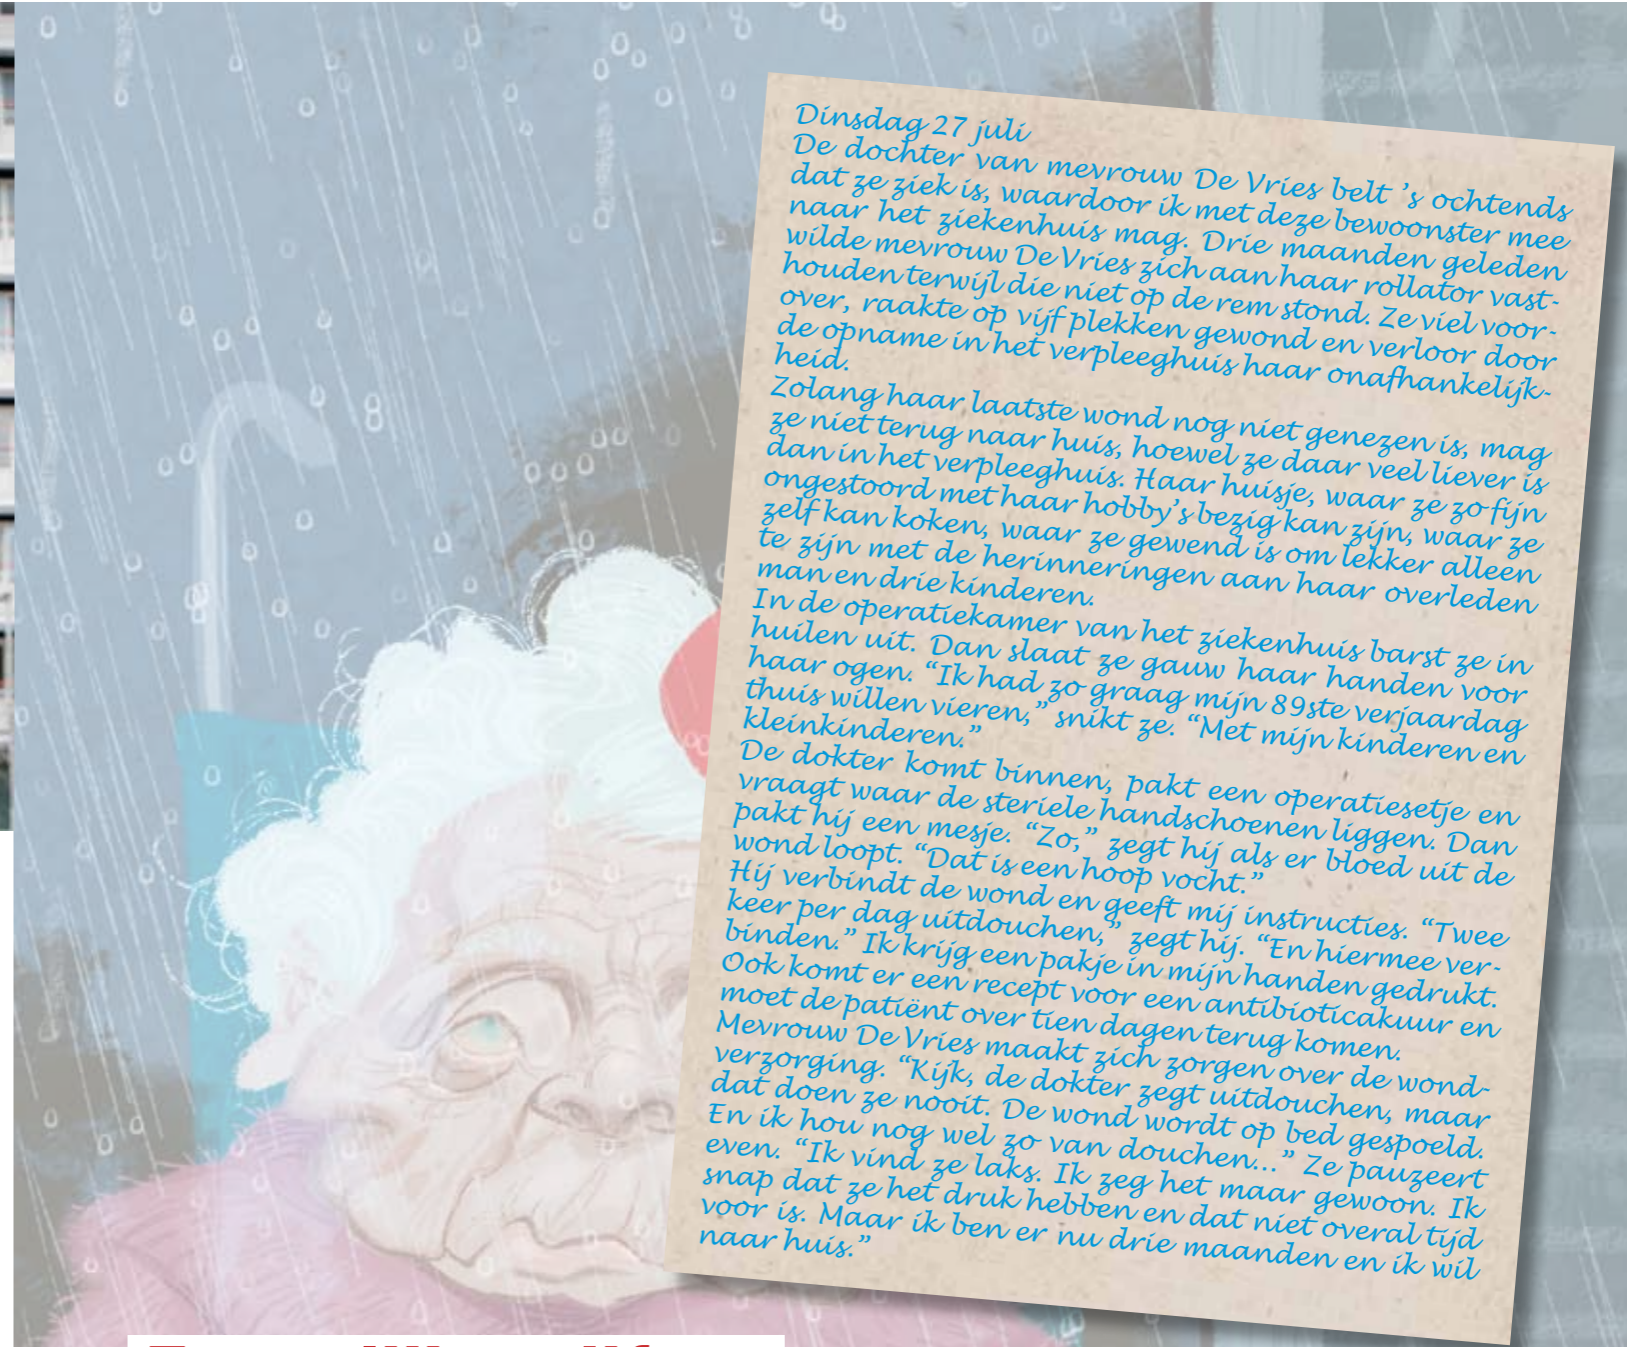 Dinsdag 27 juli
De dochter van mevrouw De Vries belt ’s ochtends
dat ze ziek is, waardoor ik met deze bewoonster mee
naar het ziekenhuis mag. Drie maanden geleden
wilde mevrouw De Vries zich aan haar rollator vast-
houden terwijl die niet op de rem stond. Ze viel voor-
over, raakte op vijf plekken gewond en verloor door
de opname in het verpleeghuis haar onafhankelijk-
heid.
Zolang haar laatste wond nog niet genezen is, mag
ze niet terug naar huis, hoewel ze daar veel liever is
dan in het verpleeghuis. Haar huisje, waar ze zo fijn
ongestoord met haar hobby’s bezig kan zijn, waar ze
zelf kan koken, waar ze gewend is om lekker alleen
te zijn met de herinneringen aan haar overleden
man en drie kinderen.
In de operatiekamer van het ziekenhuis barst ze in
huilen uit. Dan slaat ze gauw haar handen voor
haar ogen. “Ik had zo graag mijn 89ste verjaardag
thuis willen vieren,” snikt ze. “Met mijn kinderen en
kleinkinderen.”
De dokter komt binnen, pakt een operatiesetje en
vraagt waar de steriele handschoenen liggen. Dan
pakt hij een mesje. “Zo,” zegt hij als er bloed uit de
wond loopt. “Dat is een hoop vocht.”
Hij verbindt de wond en geeft mij instructies. “Twee
keer per dag uitdouchen,” zegt hij. “En hiermee ver-
binden.” Ik krijg een pakje in mijn handen gedrukt.
Ook komt er een recept voor een antibioticakuur en
moet de patiënt over tien dagen terug komen.
Mevrouw De Vries maakt zich zorgen over de wond-
verzorging. “Kijk, de dokter zegt uitdouchen, maar
dat doen ze nooit. De wond wordt op bed gespoeld.
En ik hou nog wel zo van douchen...” Ze pauzeert
even. “Ik vind ze laks. Ik zeg het maar gewoon. Ik
snap dat ze het druk hebben en dat niet overal tijd
voor is. Maar ik ben er nu drie maanden en ik wil
naar huis.”